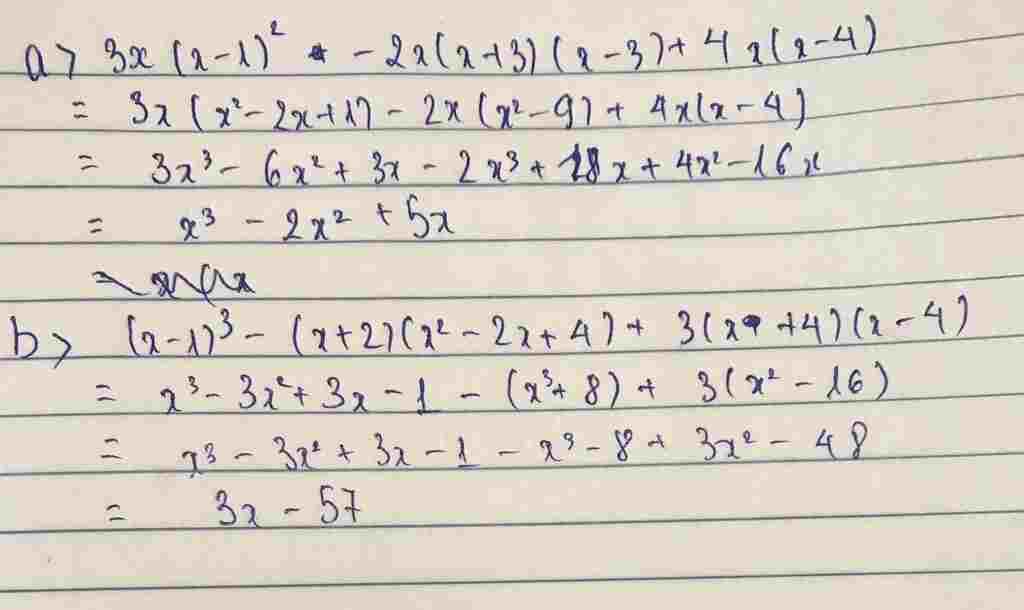 a> 3x (x-1)² - 2x(x+3)(x-3)+ 4x(x-4)
= 3x (x²-2x+1) - 2x (x²-9) + 4x(x-4)
= 3x³ - 6x² + 3x - 2x³ + 18x + 4x² - 16x
= x³ - 2x² + 5x
b> (x-1)³ - (x+2)(x²-2x+4) + 3(x+4)(x-4)
= x³ - 3x² + 3x - 1 - (x³+8) + 3(x²-16)
= x³ - 3x² + 3x - 1 - x³ - 8 + 3x² - 48
= 3x - 57